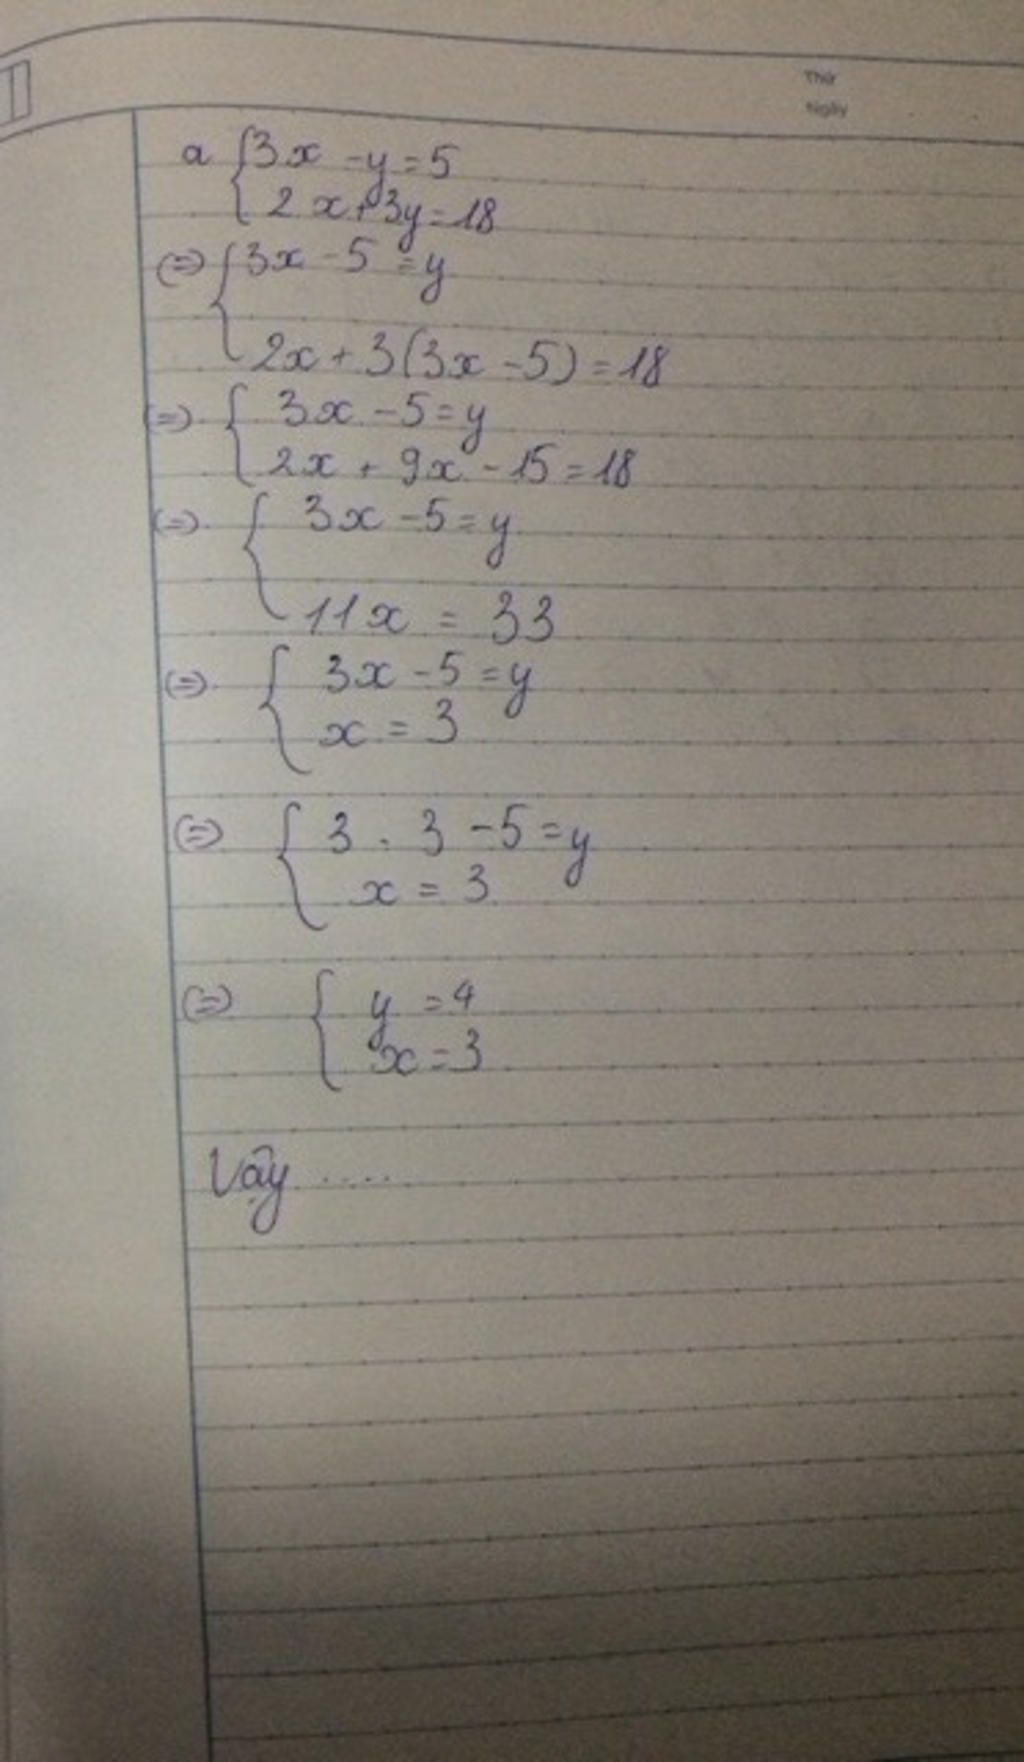 Thứ
Ngày
a { 3x - y = 5
2x + 3y = 18
(=) { 3x - 5 = y
2x + 3(3x - 5) = 18
(=) { 3x - 5 = y
2x + 9x - 15 = 18
(=) { 3x - 5 = y
11x = 33
(=) { 3x - 5 = y
x = 3
(=) { 3 . 3 - 5 = y
x = 3
(=) { y = 4
x = 3
Vậy .....